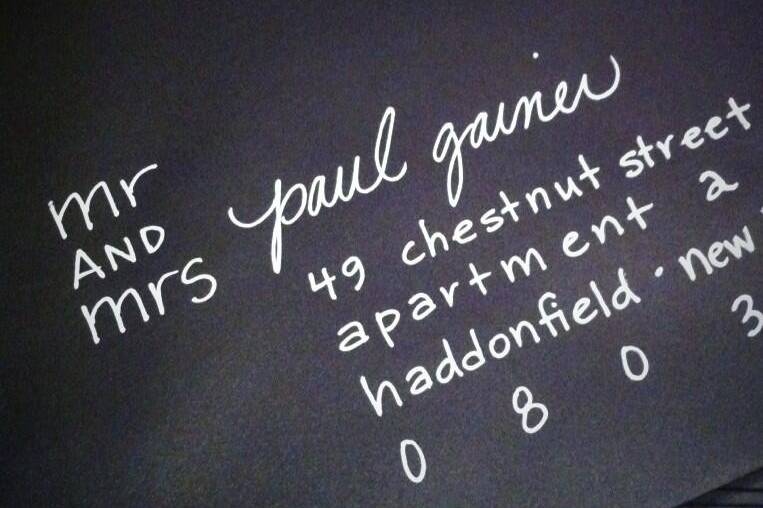 mr
AND
mrs
paul gainer
49 chestnut street
apartment a
haddonfield • new
0 8 0 3